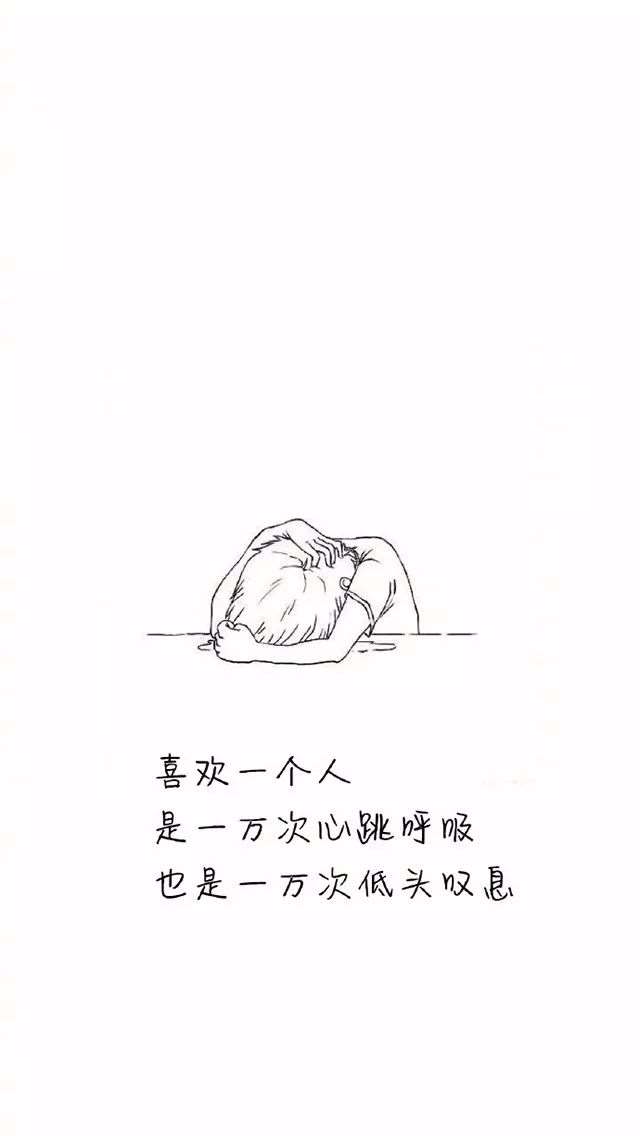 喜欢一个人
是一万次心跳呼吸
也是一万次低头叹息